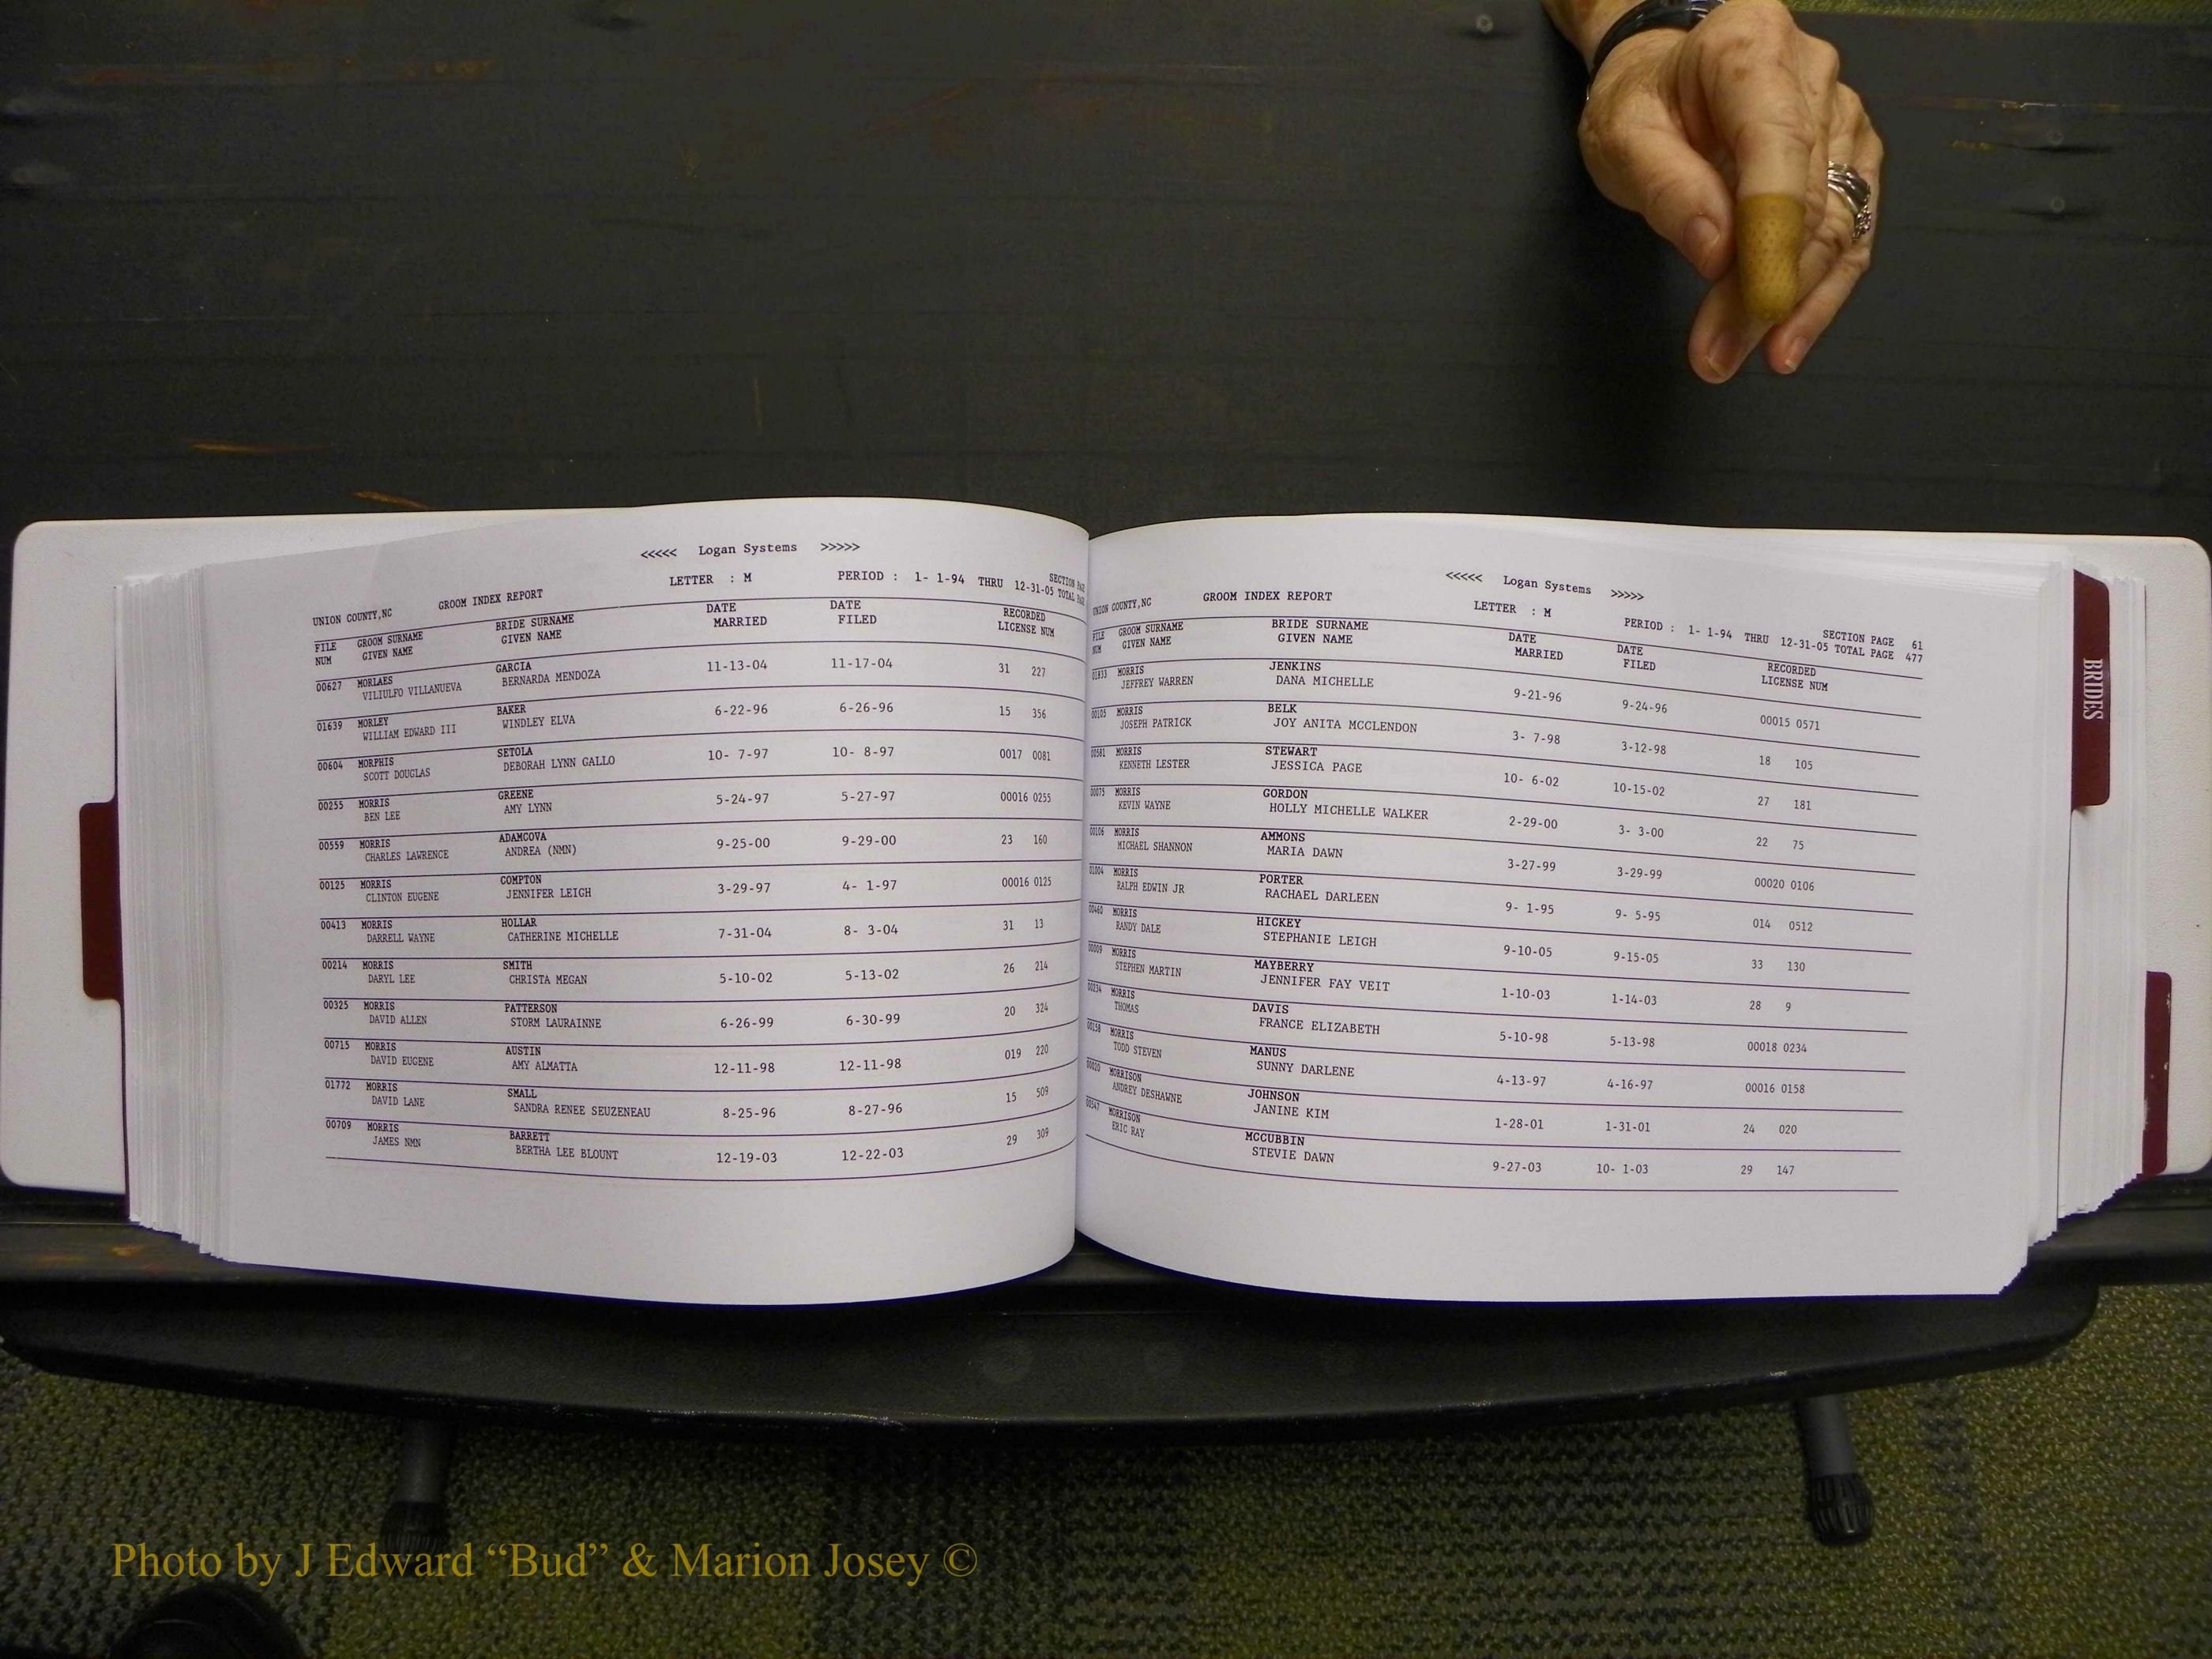 <<<<< Logan Systems >>>>>
UNION COUNTY,NC GROOM INDEX REPORT LETTER : M PERIOD : 1- 1-94 THRU 12-31-05 SECTION
TOTAL
FILE GROOM SURNAME BRIDE SURNAME DATE DATE RECORDED
NUM GIVEN NAME GIVEN NAME MARRIED FILED LICENSE NUM
00627 MORLAES GARCIA 11-13-04 11-17-04 31 227
VILIULFO VILLANUEVA BERNARDA MENDOZA
01639 MORLEY BAKER 6-22-96 6-26-96 15 356
WILLIAM EDWARD III WINDLEY ELVA
00604 MORPHIS SETOLA 10- 7-97 10- 8-97 0017 0081
SCOTT DOUGLAS DEBORAH LYNN GALLO
00255 MORRIS GREENE 5-24-97 5-27-97 00016 0255
BEN LEE AMY LYNN
00559 MORRIS ADAMCOVA 9-25-00 9-29-00 23 160
CHARLES LAWRENCE ANDREA (NMN)
00125 MORRIS COMPTON 3-29-97 4- 1-97 00016 0125
CLINTON EUGENE JENNIFER LEIGH
00413 MORRIS HOLLAR 7-31-04 8- 3-04 31 13
DARRELL WAYNE CATHERINE MICHELLE
00214 MORRIS SMITH 5-10-02 5-13-02 26 214
DARYL LEE CHRISTA MEGAN
00325 MORRIS PATTERSON 6-26-99 6-30-99 20 324
DAVID ALLEN STORM LAURAINNE
00715 MORRIS AUSTIN 12-11-98 12-11-98 019 220
DAVID EUGENE AMY ALMATTA
01772 MORRIS SMALL 8-25-96 8-27-96 15 509
DAVID LANE SANDRA RENEE SEUZENEAU
00709 MORRIS BARRETT 12-19-03 12-22-03 29 309
JAMES NMN BERTHA LEE BLOUNT
<<<<< Logan Systems >>>>>
UNION COUNTY,NC GROOM INDEX REPORT LETTER : M PERIOD : 1- 1-94 THRU 12-31-05 SECTION PAGE 61
TOTAL PAGE 477
FILE GROOM SURNAME BRIDE SURNAME DATE DATE RECORDED
NUM GIVEN NAME GIVEN NAME MARRIED FILED LICENSE NUM
01933 MORRIS JENKINS 9-21-96 9-24-96 00015 0571
JEFFREY WARREN DANA MICHELLE
00105 MORRIS BELK 3- 7-98 3-12-98 18 105
JOSEPH PATRICK JOY ANITA MCCLENDON
00581 MORRIS STEWART 10- 6-02 10-15-02 27 181
KENNETH LESTER JESSICA PAGE
00075 MORRIS GORDON 2-29-00 3- 3-00 22 75
KEVIN WAYNE HOLLY MICHELLE WALKER
00106 MORRIS AMMONS 3-27-99 3-29-99 00020 0106
MICHAEL SHANNON MARIA DAWN
01004 MORRIS PORTER 9- 1-95 9- 5-95 014 0512
RALPH EDWIN JR RACHAEL DARLEEN
00460 MORRIS HICKEY 9-10-05 9-15-05 33 130
RANDY DALE STEPHANIE LEIGH
00009 MORRIS MAYBERRY 1-10-03 1-14-03 28 9
STEPHEN MARTIN JENNIFER FAY VEIT
00234 MORRIS DAVIS 5-10-98 5-13-98 00018 0234
THOMAS FRANCE ELIZABETH
00158 MORRIS MANUS 4-13-97 4-16-97 00016 0158
TODD STEVEN SUNNY DARLENE
00020 MORRISON JOHNSON 1-28-01 1-31-01 24 020
ANDREY DESHAWNE JANINE KIM
00547 MORRISON MCCUBBIN 9-27-03 10- 1-03 29 147
ERIC RAY STEVIE DAWN
BRIDES
Photo by J Edward “Bud” & Marion Josey ©